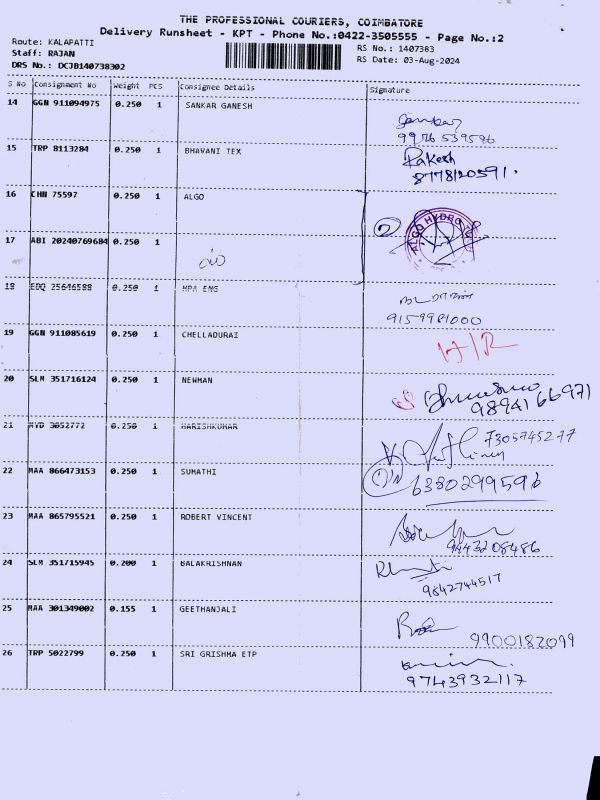 THE PROFESSIONAL COURIERS, COIMBATORE
Delivery Runsheet - KPT - Phone No.:0422-3505555 - Page No.:2
Route: KALAPATTI
Staff: RAJAN
DRS No.: DCJB140738302
RS No.: 1407383
RS Date: 03-Aug-2024
S No Consignment No Weight PCS Consignee Details Signature
14 GGN 911094975 0.250 1 SANKAR GANESH
Sankar
9976539596
15 TRP 8113284 0.250 1 BHAVANI TEX Rakesh
8778120591.
16 CHN 75597 0.250 1 ALGO
2 ALGO HYDRO
17 ABI 20240769684 0.250 1
18 EDQ 25646588 0.250 1 MPA ENG
9159981000
19 GGN 911085619 0.250 1 CHELLADURAI H/R
20 SLM 351716124 0.250 1 NEWMAN
9894166971
21 HYD 3852772 0.250 1 HARISHKUMAR 7305745277
22 MAA 866473153 0.250 1 SUMATHI 6380299596
23 MAA 865795521 0.250 1 ROBERT VINCENT
9443208486
24 SLM 351715945 0.200 1 BALAKRISHNAN
9842744517
25 MAA 301349002 0.155 1 GEETHANJALI
9900182099
26 TRP 5022799 0.250 1 SRI GRISHMA ETP
9743932117